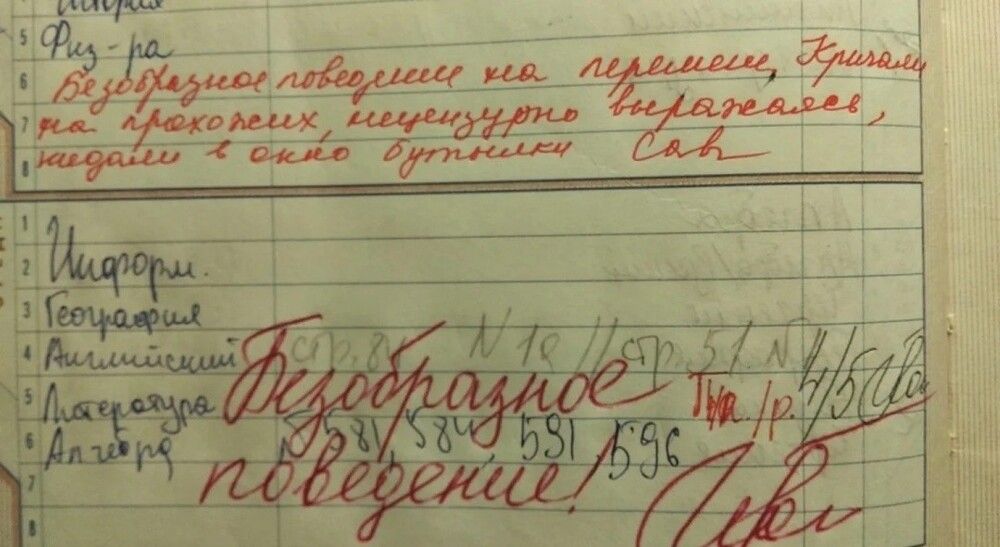 История
5 Физ-ра
6 Безобразное поведение на перемене. Кричали
7 на прохожих, нецензурно выражаясь,
8 кидали в окно бутылки Сав
1
2 Информ.
3 География
4 Английский стр. 84 N 19 // стр. 51. N
5 Литература П/а./р. 4/5
Безобразное
6 Алгебра 581, 584, 591, 596
7 поведение!
8